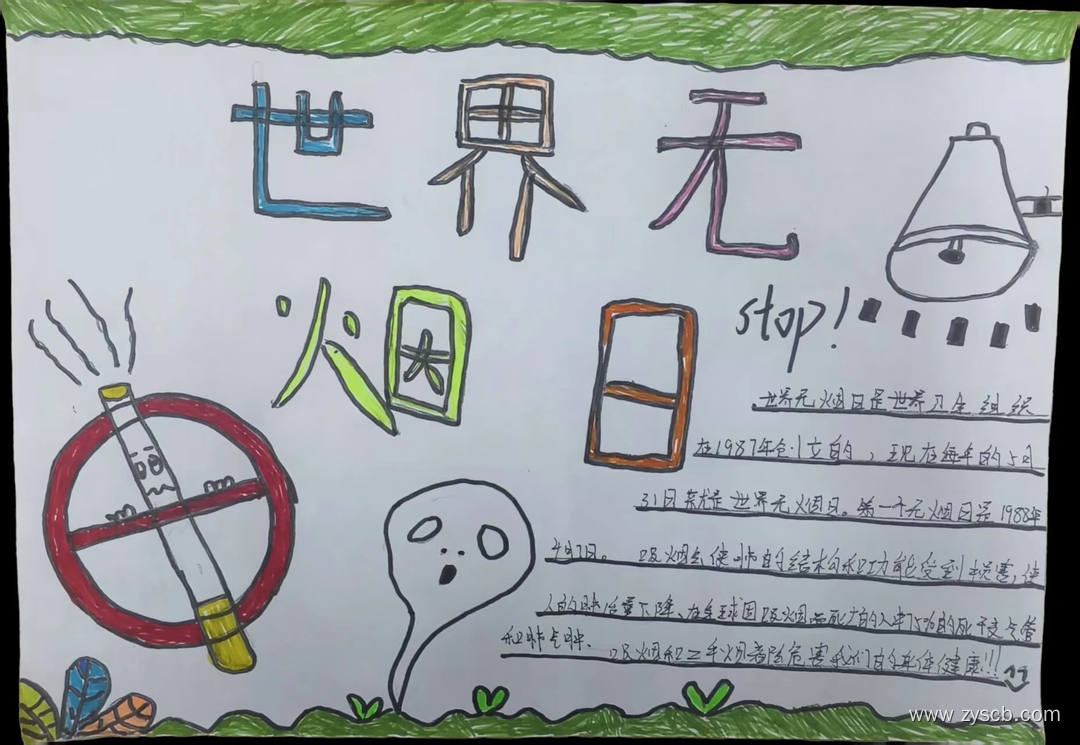 世界无
烟日
stop!
世界无烟日是世界卫生组织
在1987年创立的,现在每年的5月
31日就是世界无烟日。第一个无烟日是1988年
4月7日。吸烟会使肺的结构和功能受到损害,使
人的肺活量下降、在全球因吸烟而死亡的人中75%的死于支气管
和肺气肿.吸烟和二手烟都危害我们的身体健康!!!
www.zyscb.com